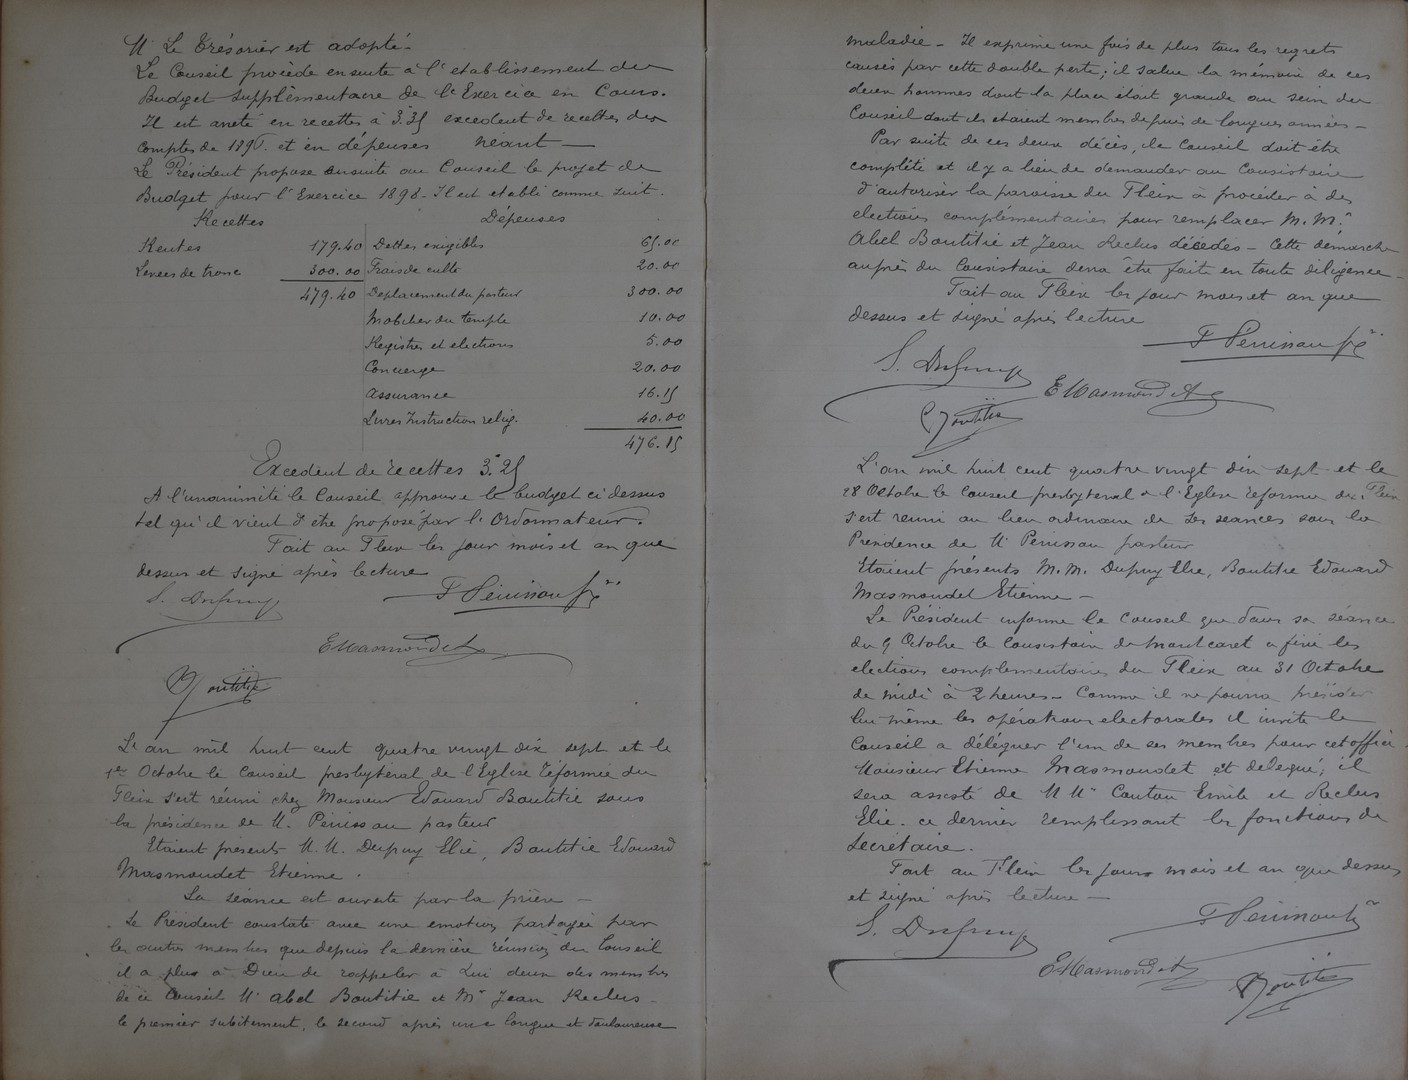 Mr Le Trésorier est adopté.
Le Conseil procède ensuite à l'etablissement du
Budget supplémentaire de l'Exercice en Cours.
Il est arreté en recettes à 3.35 excedent de recettes des
comptes de 1896. et en dépenses néant —
Le Président propose ensuite au Conseil le projet de
Budget pour l'Exercice 1898 - Il est etabli comme suit.
Recettes Dépenses
Rentes 179.40 Dettes exigibles 65.00
Levées de tronc 300.00 Frais de culte 20.00
479.40 Deplacement du pasteur 300.00
Mobilier du temple 10.00
Registres et elections 5.00
Concierge 20.00
Assurance 16.15
Livres Instruction relig. 40.00
476.15
Excedent de recettes 3f.25
A l'unanimité le Conseil approuve le budget ci dessus
tel qu'il vient d'être proposé par l'Ordonnateur.
Fait au Fleix les jour mois et an que
dessus et signé après lecture
S. Dupuy F Perissau pr
E Masmondet
E Boutitie
L'an mil huit cent quatre vingt dix sept et le
1er Octobre le Conseil presbytéral de l'Eglise réformée du
Fleix s'est réuni chez Monsieur Edouard Boutitie sous
la présidence de M. Perissau pasteur
Etaient présents M.M. Dupuy Elie, Boutitie Edouard
Masmondet Etienne.
La séance est ouverte par la prière —
Le Président constate avec une emotion partagée par
les autres membres que depuis la dernière réunion du Conseil
il a plu à Dieu de rappeler à Lui deux des membres
de ce Conseil Mr Abel Boutitie et Mr Jean Reclus -
le premier subitement, le second après une longue et douloureuse
maladie - Il exprime une fois de plus tous les regrets
causés par cette double perte; il salue la mémoire de ces
deux hommes dont la place était grande au sein du
Conseil dont ils etaient membres depuis de longues années -
Par suite de ces deux décès, le Conseil doit être
complété et il y a lieu de demander au Consistoire
d'autoriser la paroisse du Fleix à procéder à des
elections complémentaires pour remplacer M.M.rs
Abel Boutitie et Jean Reclus décédés - Cette démarche
auprès du Consistoire devra être faite en toute diligence -
Fait au Fleix les jour mois et an que
dessus et signé après lecture
F Perissau pr
S. Dupuy
E Masmondet
E Boutitie
L'an mil huit cent quatre vingt dix sept et le
28 Octobre le Conseil presbyteral de l'Eglise reformée du Fleix
s'est reuni au lieu ordinaire de ses séances sous la
Presidence de Mr Perissau pasteur
Etaient présents M.M. Dupuy Elie, Boutitie Edouard
Masmondet Etienne -
Le Président informe le Conseil que dans sa séance
du 9 Octobre le Consistoire de Montcaret a fixé les
elections complémentaires du Fleix au 31 Octobre
de midi à 2 heures - Comme il ne pourra présider
lui même les opérations electorales il invite le
Conseil a déléguer l'un de ses membres pour cet office
Monsieur Etienne Masmondet est delegué; il
sera assisté de M Mrs Cautou Emile et Reclus
Elie. ce dernier remplissant les fonctions de
Secrétaire.
Fait au Fleix les jours mois et an que dessus
et signé après lecture —
S. Dupuy F Perissau pr
E Masmondet
E Boutitie